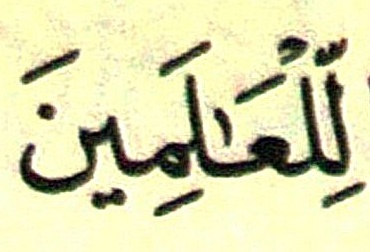 لِّلْعَٰلَمِينَ